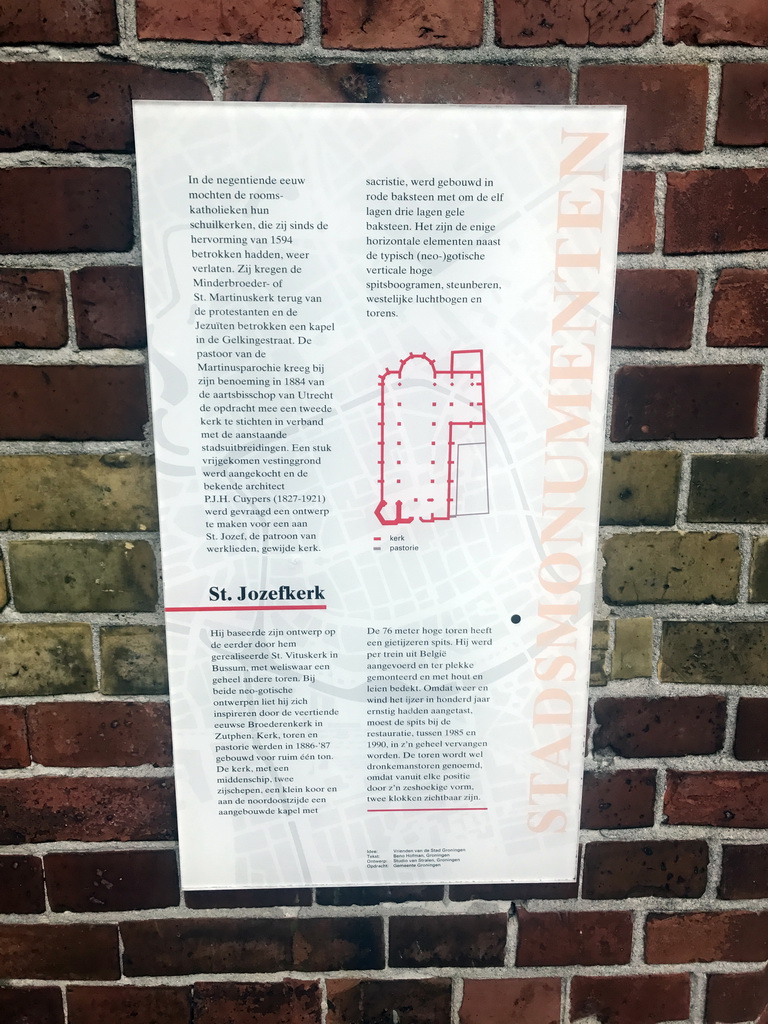 In de negentiende eeuw
mochten de rooms-
katholieken hun
schuilkerken, die zij sinds de
hervorming van 1594
betrokken hadden, weer
verlaten. Zij kregen de
Minderbroeder- of
St. Martinuskerk terug van
de protestanten en de
Jezuïten betrokken een kapel
in de Gelkingestraat. De
pastoor van de
Martinusparochie kreeg bij
zijn benoeming in 1884 van
de aartsbisschop van Utrecht
de opdracht mee een tweede
kerk te stichten in verband
met de aanstaande
stadsuitbreidingen. Een stuk
vrijgekomen vestinggrond
werd aangekocht en de
bekende architect
P.J.H. Cuypers (1827-1921)
werd gevraagd een ontwerp
te maken voor een aan
St. Jozef, de patroon van
werklieden, gewijde kerk.
St. Jozefkerk
Hij baseerde zijn ontwerp op
de eerder door hem
gerealiseerde St. Vituskerk in
Bussum, met weliswaar een
geheel andere toren. Bij
beide neo-gotische
ontwerpen liet hij zich
inspireren door de veertiende
eeuwse Broederenkerk in
Zutphen. Kerk, toren en
pastorie werden in 1886-'87
gebouwd voor ruim één ton.
De kerk, met een
middenschip, twee
zijschepen, een klein koor en
aan de noordoostzijde een
aangebouwde kapel met
sacristie, werd gebouwd in
rode baksteen met om de elf
lagen drie lagen gele
baksteen. Het zijn de enige
horizontale elementen naast
de typisch (neo-)gotische
verticale hoge
spitsboogramen, steunberen,
westelijke luchtbogen en
torens.
kerk
pastorie
De 76 meter hoge toren heeft
een gietijzeren spits. Hij werd
per trein uit België
aangevoerd en ter plekke
gemonteerd en met hout en
leien bedekt. Omdat weer en
wind het ijzer in honderd jaar
ernstig hadden aangetast,
moest de spits bij de
restauratie, tussen 1985 en
1990, in z'n geheel vervangen
worden. De toren wordt wel
dronkemanstoren genoemd,
omdat vanuit elke positie
door z'n zeshoekige vorm,
twee klokken zichtbaar zijn.
Idee: Vrienden van de Stad Groningen
Tekst: Beno Hofman, Groningen
Ontwerp: Studio van Stralen, Groningen
Opdracht: Gemeente Groningen
STADSMONUMENTEN